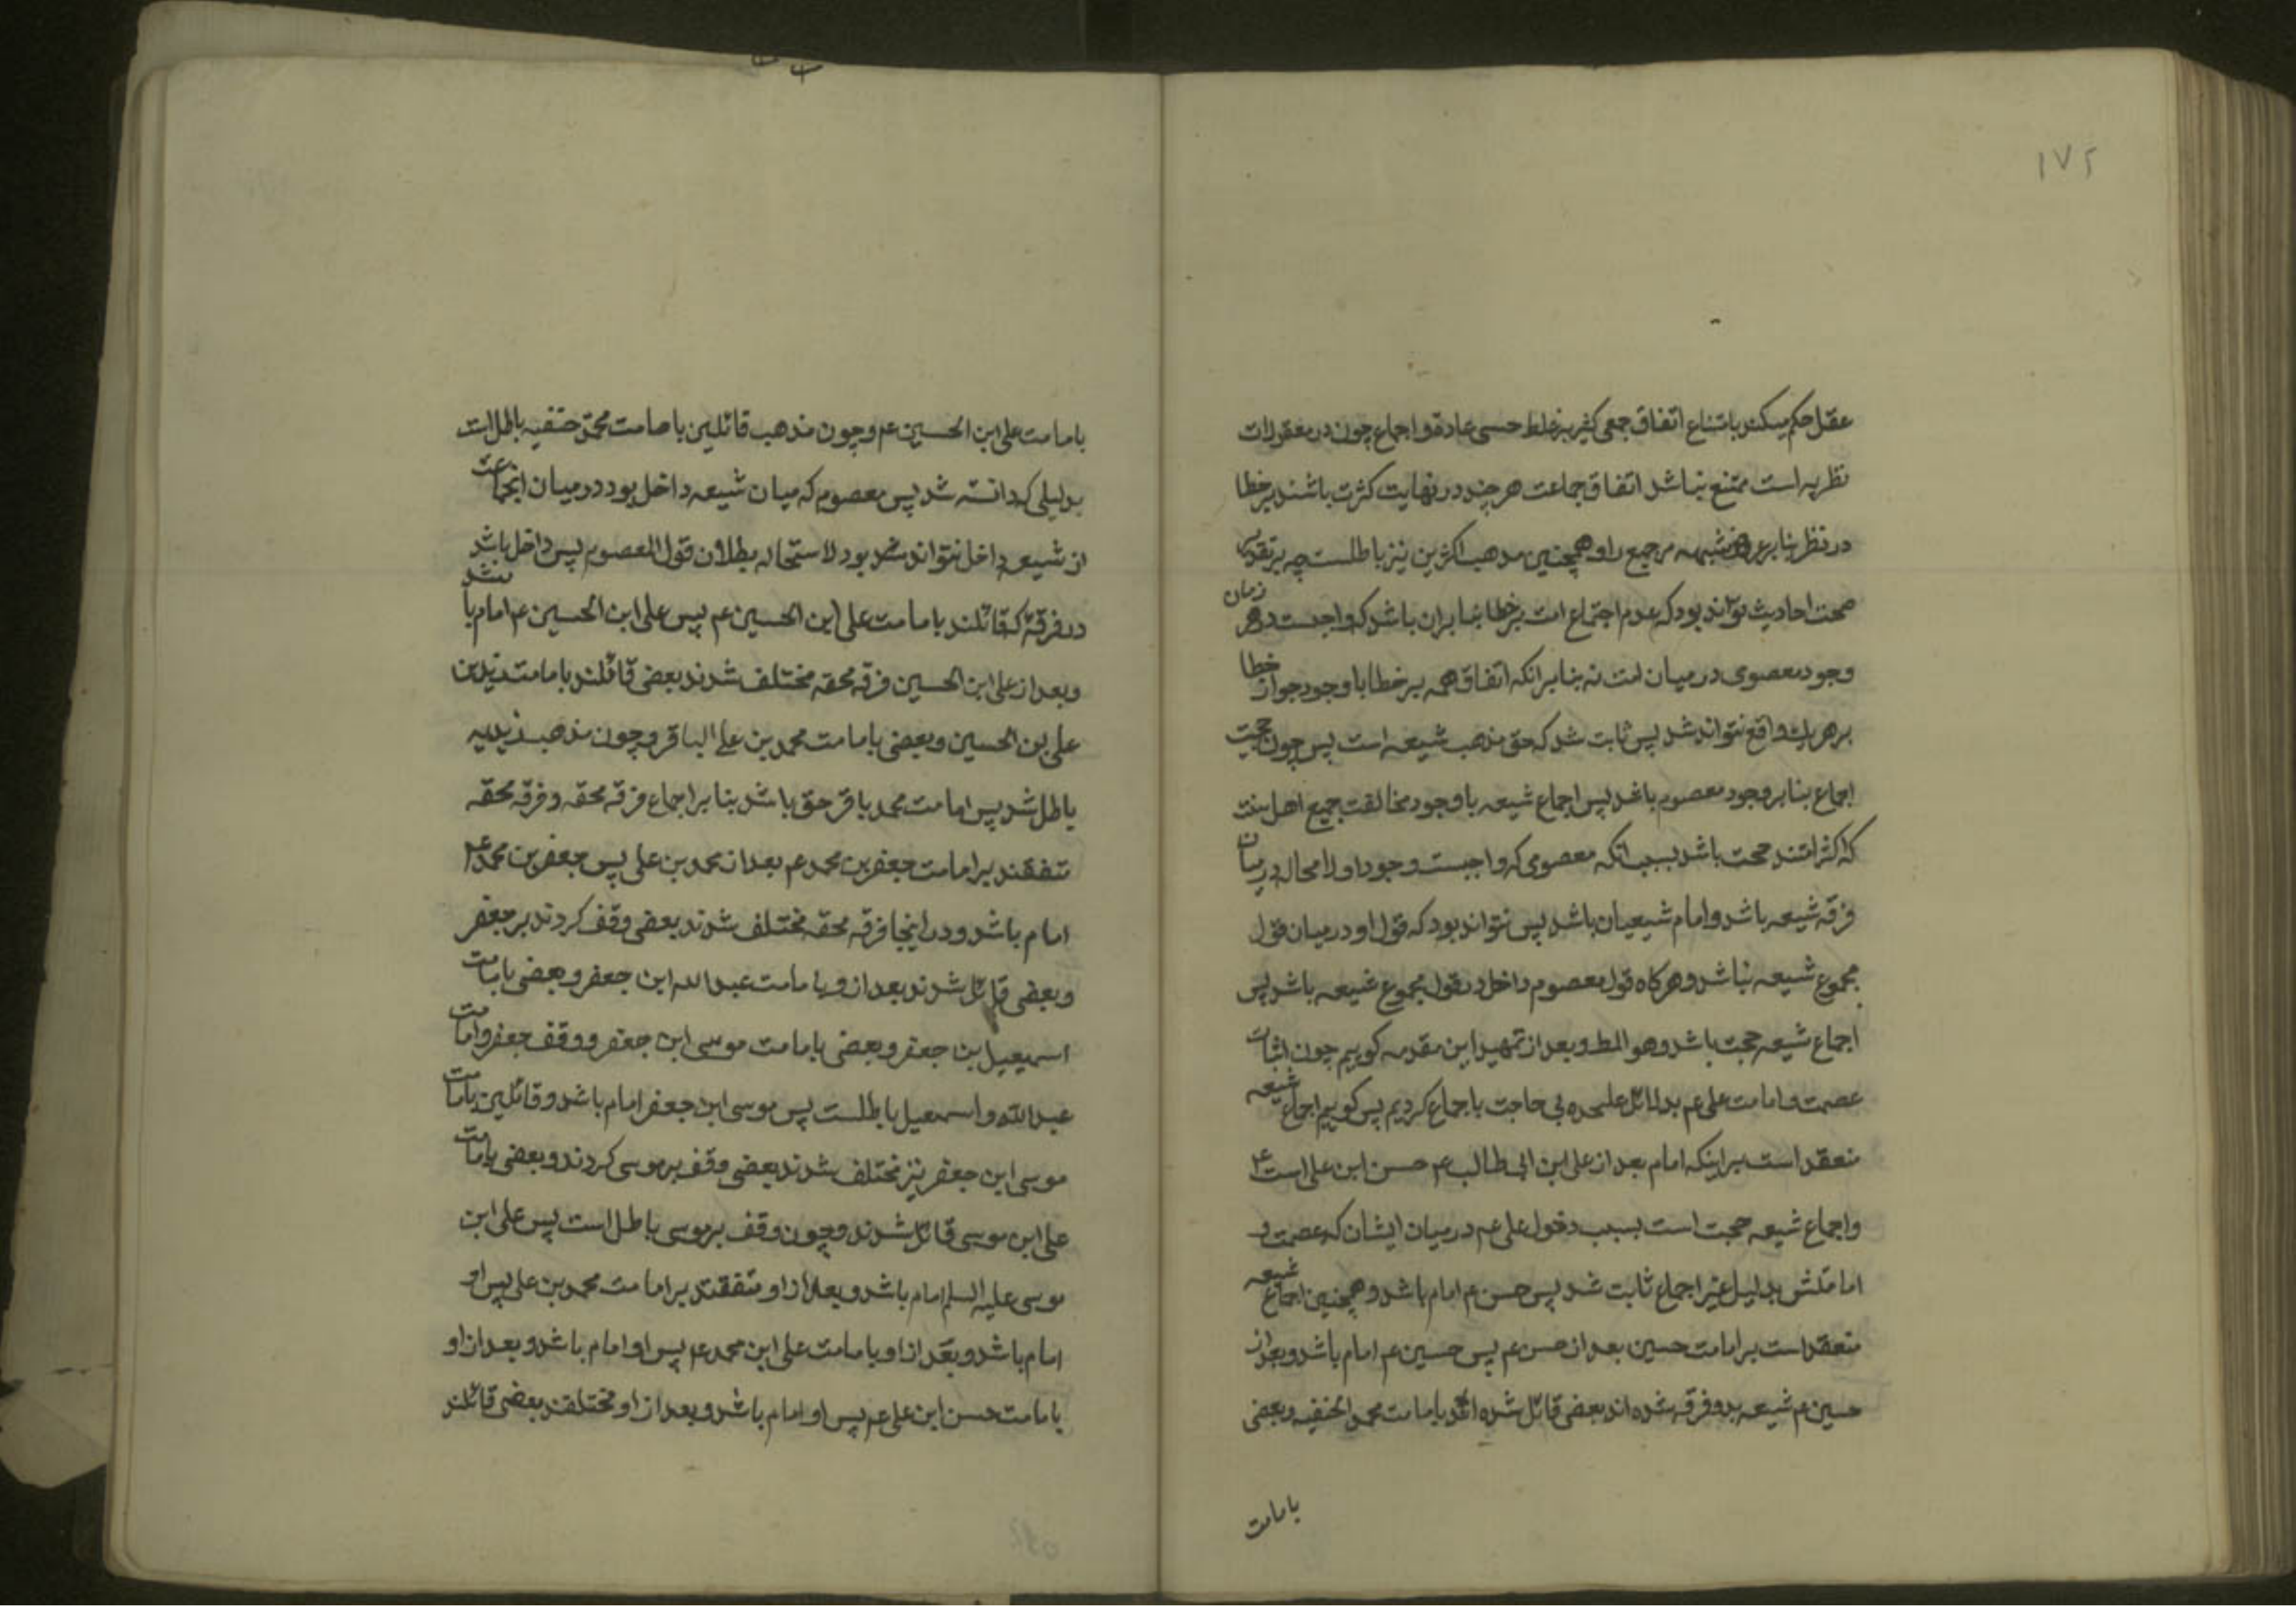 ۱۷۲
عقل حکم میکند بامتناع اتفاق جمعی کثیر بر غلط حسی عادة و اجماع چون در معقولات
نظریه است ممتنع نباشد اتفاق جماعت هر چند در نهایت کثرت باشند بر خطا
در نظر بنابر عروض شبهه مر جمیع را و همچنین مذهب اکثرین نیز باطلست چه بر تقدیر
صحت احادیث تواند بود که عدم اجتماع امت بر خطا بنابران باشد که واجبست در هر زمان
وجود معصومی در میان امت نه بنابر انکه اتفاق همه بر خطا با وجود جواز خطا
بر هر یک واقع نتواند شد پس ثابت شد که حق مذهب شیعه است پس چون حجیت
اجماع بنابر وجود معصوم باشد پس اجماع شیعه با وجود مخالفت جمیع اهل سنت
که اکثر امتند حجت باشد بسبب انکه معصومی که واجبست وجود او لا محاله در میان
فرقه شیعه باشد و امام شیعیان باشد پس نتواند بود که قول او در میان قول
مجموع شیعه نباشد و هرکاه قول معصوم داخل در قول مجموع شیعه باشد پس
اجماع شیعه حجت باشد و هو المط و بعد از تمهید این مقدمه کوییم چون اثبات
عصمت و امامت علی عم بدلائل علیحده بی حاجت باجماع کردیم پس کوییم اجماع شیعه
منعقد است بر اینکه امام بعد از علی ابن ابی طالب عم حسن ابن علی است عم
و اجماع شیعه حجت است بسبب دخول علی عم در میان ایشان که عصمت و
امامتش بدلیل غیر اجماع ثابت شد پس حسن عم امام باشد و همچنین اجماع شیعه
منعقد است بر امامت حسین بعد از حسن عم پس حسین عم امام باشد و بعد از
حسین عم شیعه بدو فرقه شده اند بعضی قائل شده اند بامامت محمد الحنفیه و بعضی
بامامت
بامامت علی ابن الحسین عم و چون مذهب قائلین بامامت محمد حنفیه باطل است
بدلیلی که دانسته شد پس معصوم که میان شیعه داخل بود در میان انجماعت
از شیعه داخل نتواند بود لاستحاله بطلان قول المعصوم پس داخل باشد
در فرقهٔ که قائلند بامامت علی ابن الحسین عم پس علی ابن الحسین عم امام باشد
و بعد از علی ابن الحسین فرقه محقه مختلف شدند بعضی قائلند بامامت زید بن
علی بن الحسین و بعضی بامامت محمد بن علی الباقر و چون مذهب زیدیه
باطل شد پس امامت محمد باقر حق باشد بنابر اجماع فرقه محقه و فرقه محقه
متفقند بر امامت جعفر بن محمد عم بعد از محمد بن علی پس جعفر بن محمد عم
امام باشد و در اینجا فرقه محقه مختلف شدند بعضی وقف کردند بر جعفر
و بعضی قائل شدند بعد از و بامامت عبد الله ابن جعفر و بعضی بامامت
اسمعیل بن جعفر و بعضی بامامت موسی ابن جعفر و وقف جعفر و امامت
عبد الله و اسمعیل باطلست پس موسی ابن جعفر امام باشد و قائلین بامامت
موسی ابن جعفر نیز مختلف شدند بعضی وقف بر موسی کردند و بعضی بامامت
علی ابن موسی قائل شدند و چون وقف بر موسی باطل است پس علی ابن
موسی علیه السلم امام باشد و بعد از او متفقند بر امامت محمد بن علی پس او
امام باشد و بعد از او بامامت علی ابن محمد عم پس او امام باشد و بعد از او
بامامت حسن ابن علی عم پس او امام باشد و بعد از او مختلفند بعضی قائلند